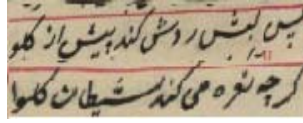 پس لبش ردش کند پیش از کلو
کرچه نعره می کند شیطان کلوا